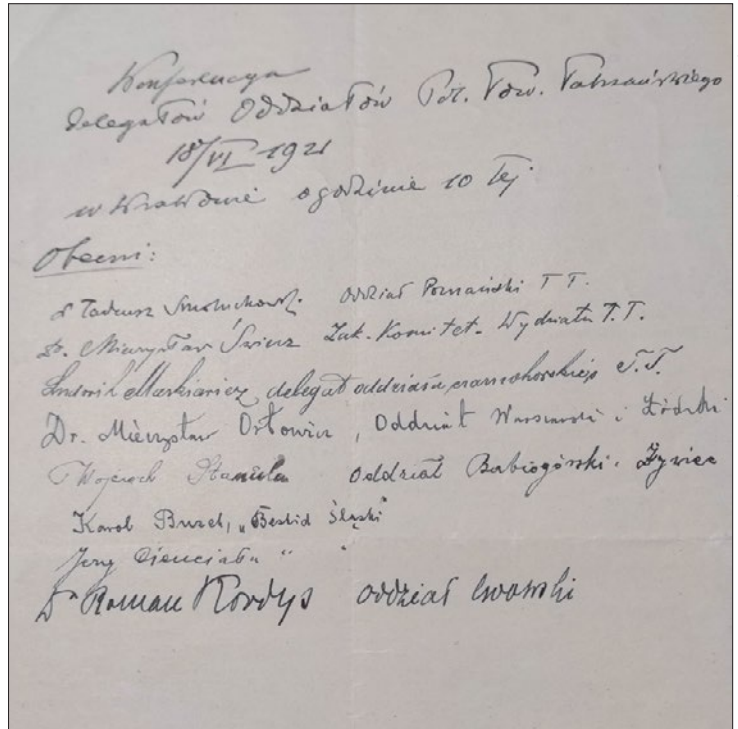 Konferencya
delegatów Oddziałów Pol. Tow. Tatrzańskiego
18/VI 1921
w Krakowie o godzinie 10 tej
Obecni:
dr Tadeusz Smoluchowski. Oddział Poznański T T.
Dr. Mieczysław Świerz Zak. Komitet. Wydziału T. T.
Ludwik Markiewicz delegat oddziału czarnohorskiego T.T.
Dr. Mieczysław Orłowicz, Oddział Warszawski i Łódzki
Wojciech Oddział Babiogórski. Żywiec
Karol Buzek, „Beskid Śląski"
Jerzy Cienciała " "
Dr Roman Kordys oddział lwowski